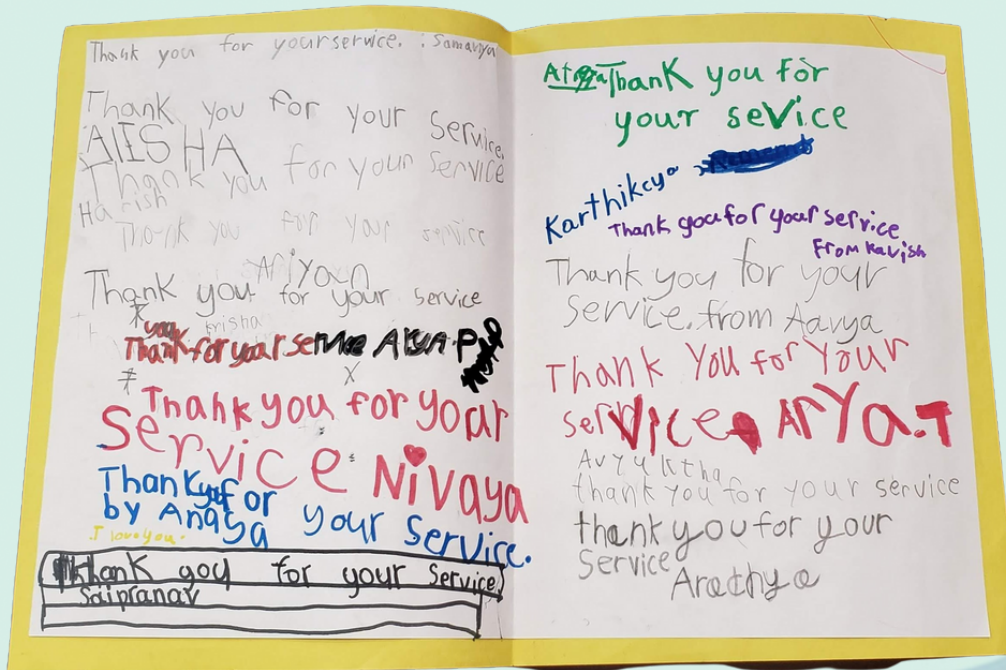 Thank you for your service. : Samanya
Thank you for your service.
AlISHA
Thank you for your Service
Harish
Thank you for your service
Ariyan
Thank you for your service
krisha
you
Thank for your service Arya.P
Thank you for your
Service Nivaya
Thank you for
by Anaya your Service.
I love you.
thank you for your Service.
Saipranav
Thank you for
your sevice
Karthikcya
Thank you for your service
From Kavish
Thank you for your
Service. from Aavya
Thank You for Your
service. ArYa.T
Avyuktha
thank you for your service
thank you for your
Service
Aradhya